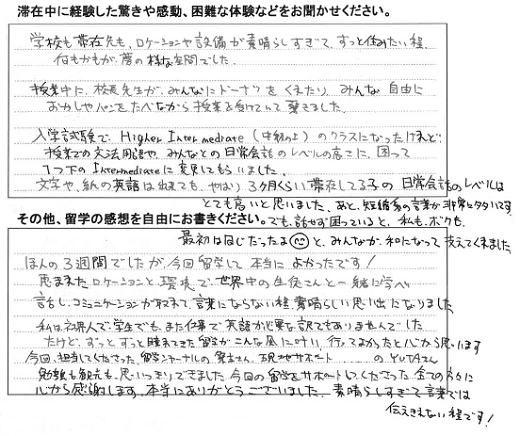 滞在中に経験した驚きや感動、困難な体験などをお聞かせください。
学校も滞在先も、ロケーションや設備が素晴らしすぎて、ずっと住みたい程、
何もかもが夢の様な空間でした。
授業中に、校長先生が、みんなにドーナツをくれたり、みんな自由に
おかしやパンをたべながら授業を受けていて驚きました。
入学試験で、Higher Intermediate (中級の上) のクラスになったけれど、
授業での文法用語や、みんなとの日常会話のレベルの高さに、困って
1つ下のIntermediateに変更してもらいました。
文字や、紙の英語は出来ても、やはり3ヶ月くらい滞在してる子の日常会話のレベルは
とても高いと思いました。あと、短縮系の言葉が非常に多いです。
その他、留学の感想を自由にお書きください。
でも、話せず困っていると、私も、ボクも、
最初は同じだったよ☺と、みんなが、和になって支えてくれました
ほんの3週間でしたが、今回留学して本当によかったです!
恵まれたロケーションと、環境で、世界中の生徒さんと一緒に学べ
話し、コミニケーションが取れて、言葉にならない程、素晴らしい思い出になりました
私は社会人で、学生でも、また仕事で英語が必要な訳でもありませんでした
だけど、ずっと、ずっと、
留学が、こんな風に叶い、行ってよかったと心から思います
今回、担当してくださった、留学ジャーナルの
サポート
のYUTAさん
勉強も観光も、思いっきりできました。今回の留学をサポートしてくださった全ての方に
心から感謝します。本当にありがとうございました。素晴らしすぎて言葉では
伝えきれない程です!